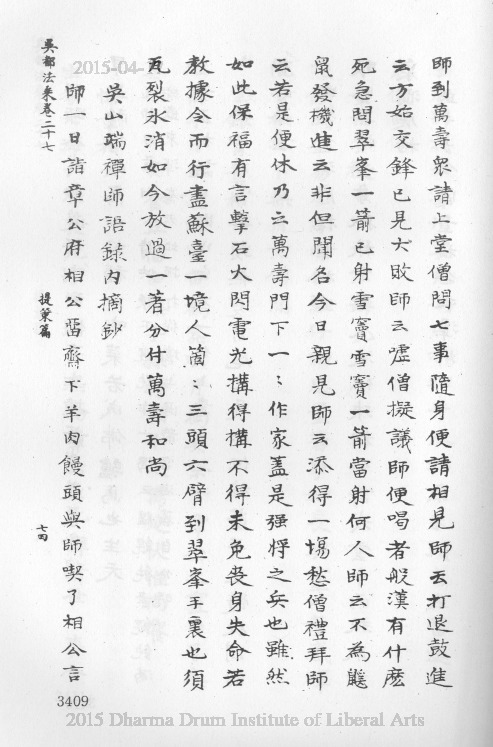 師到萬壽眾請上堂僧問七事隨身便請相見師云打退鼓進
云方始交鋒已見大敗師云噓僧擬議師便喝者般漢有什麼
死急問翠峯一箭已射雪竇雪竇一箭當射何人師云不為鼷
鼠發機進云非但聞名今日親見師云添得一場愁僧禮拜師
云若是便休乃云萬壽門下一〻作家蓋是强將之兵也雖然
如此保福有言擊石火閃電光搆得搆不得未免喪身失命若
教據令而行盡蘇臺一境人箇〻三頭六臂到翠峯手裏也須
瓦裂氷消如今放過一著分付萬壽和尚
吳山端禪師語錄內摘鈔
師一日詣章公府相公畱齋下羊肉饅頭與師喫了相公言
吳都法乘卷二十七
提策篇
七四
3409
2015-04-
2015 Dharma Drum Institute of Liberal Arts